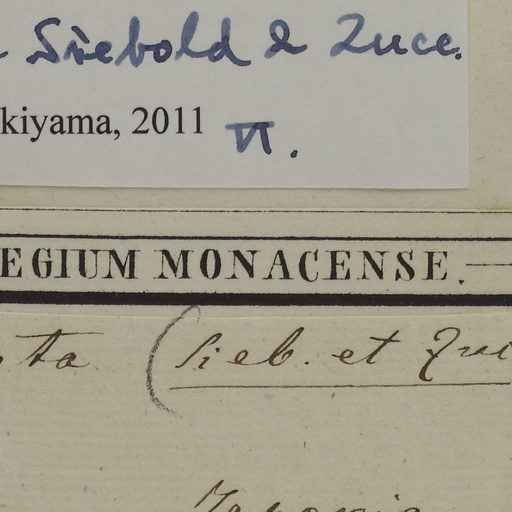 Siebold & Zucc.
kiyama, 2011 VI.
EGIUM MONACENSE.
sta (Sieb. et Zuc
Japonia